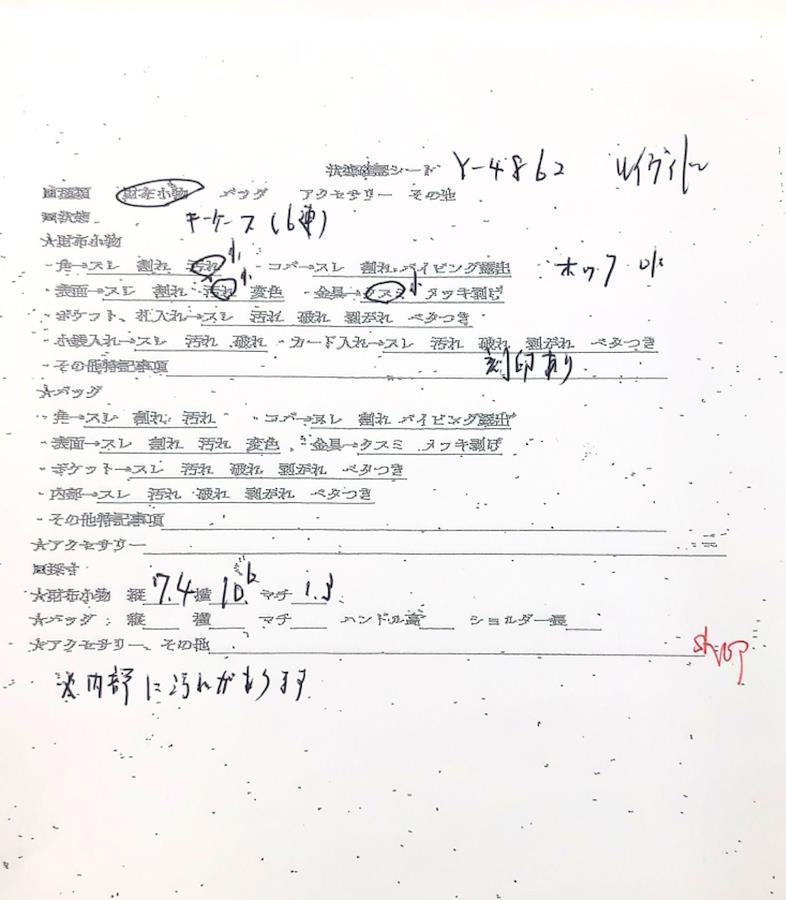 状態確認シート Y-4862 ルイヴィトン
■種類 財布小物 バッグ アクセサリー その他
■状態 キーケース(6連)
★財布小物
・角→スレ 割れ 汚れ 小 ・コバ→スレ 割れ パイピング露出 ホック OK
・表面→スレ 割れ 汚れ 小 変色 ・金具→クスミ 小 メッキ剥げ
・ポケット、札入れ→スレ 汚れ 破れ 剥がれ ベタつき
・小銭入れ→スレ 汚れ 破れ ・カード入れ→スレ 汚れ 破れ 剥がれ ベタつき
・その他特記事項 刻印あり
★バッグ
・角→スレ 割れ 汚れ ・コバ→スレ 割れ パイピング露出
・表面→スレ 割れ 汚れ 変色 ・金具→クスミ メッキ剥げ
・ポケット→スレ 汚れ 破れ 剥がれ ベタつき
・内部→スレ 汚れ 破れ 剥がれ ベタつき
・その他特記事項
★アクセサリー
■採寸
★財布小物 縦 7.4 横 10.6 マチ 1.3
★バッグ: 縦 横 マチ ハンドル高 ショルダー長
★アクセサリー、その他
shop
※内部に汚れがあります